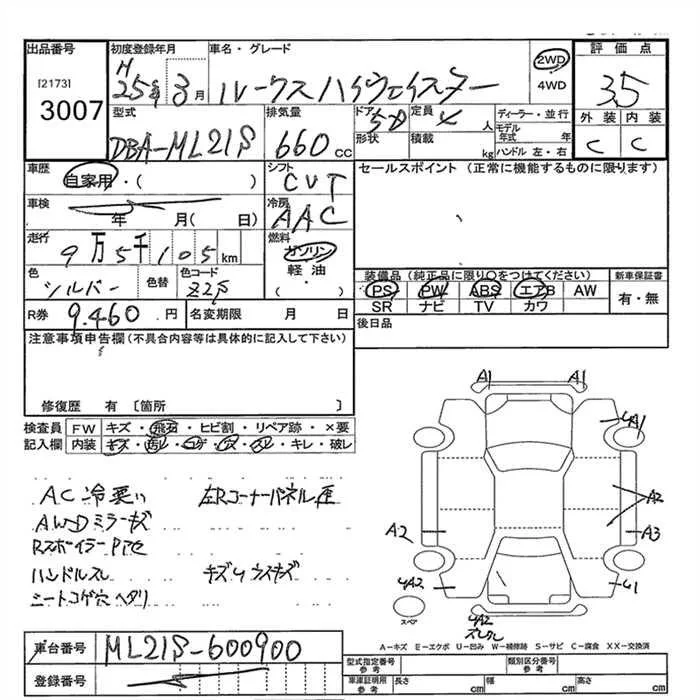 出品番号
[2173]
3007
初度登録年月
H
25年 3月
車名・グレード
ルークスハイウェイスター
2WD
4WD
評価点
3.5
外装 内装
C C
型式
DBA-ML21S
排気量
660 cc
ドア
5D
形状
定員
4 人
積載
kg
ディーラー・並行
モデル年式 年
ハンドル 左・右
車歴
自家用・( )
車検
年 月( 日)
走行
9万5千105 km
色
シルバー
色替
色コード
Z2S
シフト
CVT
冷房
AAC
燃料
ガソリン
軽油
( )
セールスポイント (正常に機能するものに限ります)
装備品 (純正品に限り○をつけてください)
PS PW ABS エアB AW
SR ナビ TV カワ
新車保証書
有・無
R券
9.460 円
名変期限 月 日
後日品
注意事項申告欄 (不具合内容等は具体的に記入して下さい)
修復歴 有 〔箇所 〕
検査員記入欄
FW キズ・飛石・ヒビ割・リペア跡・×要
内装 キズ・汚レ・コゲ・穴・スレ・キレ・破レ
AC冷悪い 左Rコーナーパネル歪
AWDミラーキズ
RスポイラーPアセ
ハンドルスレ キズ少ウスキズ
シートコゲ穴ヘタリ
A1 A1
4A1
A2
A2 A3
4A2 U1
4A2
スペア
A-キズ E-エクボ U-凹み W-補修跡 S-サビ C-腐食 XX-交換済
車台番号
ML21S-600900
登録番号
型式指定番号 参考
類別区分番号 参考
車庫証明用 参考 長さ cm 幅 cm 高さ cm